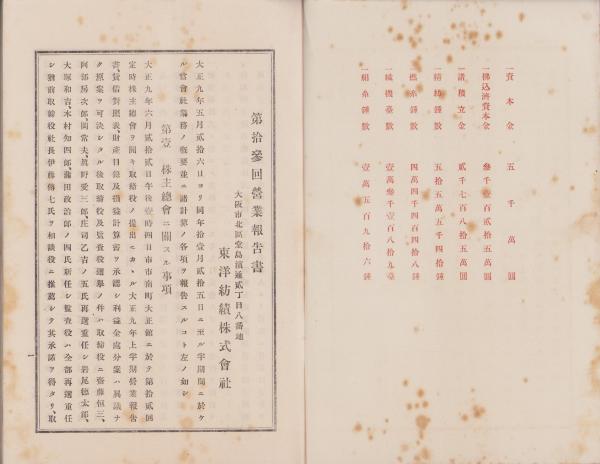 一資本金 五千萬圓
一拂込濟資本金 參千壹百貳拾五萬圓
一諸積立金 貳千七百八拾五萬圓
一精紡錘數 五拾五萬五千四拾錘
一撚糸錘數 四萬四千四百四拾八錘
一織機臺數 壹萬參千壹百八拾九臺
一絹糸錘數 壹萬五百九拾六錘
第拾參回營業報告書
大阪市北區堂島濱通貳丁目八番地
東洋紡績株式會社
大正九年五月貳拾六日ヨリ同年拾壹月貳拾五日ニ至ル半期間ニ於ケ
ル當會社業務ノ概要並ニ諸計算ノ各項ヲ報告スルコト左ノ如シ
第壹 株主總會ニ關スル事項
大正九年六月貳拾貳日午後壹時四日市市南町大正館ニ於テ第拾貳回
定時株主總會ヲ開キ取締役ノ提出ニカヽル大正九年上半期營業報告
書、貸借對照表、財產目錄及損益計算書ヲ承認シ利益金處分案ハ異議ナ
ク原案ヲ可決シタル後取締役及監査役選擧ノ件ハ取締役ニ齋藤恒三、
阿部房次郎、關常夫、眞野愛三郎、庄司乙吉ノ五氏再選重任シ岩尾德太郎、
大塚和吉、木村知四郎、種田政治郎ノ四氏新任シ監査役ハ全部再選重任
シ猶前取締役社長伊藤傳七氏ヲ相談役ニ推薦シタ其承諾ヲ得タリ、取
一